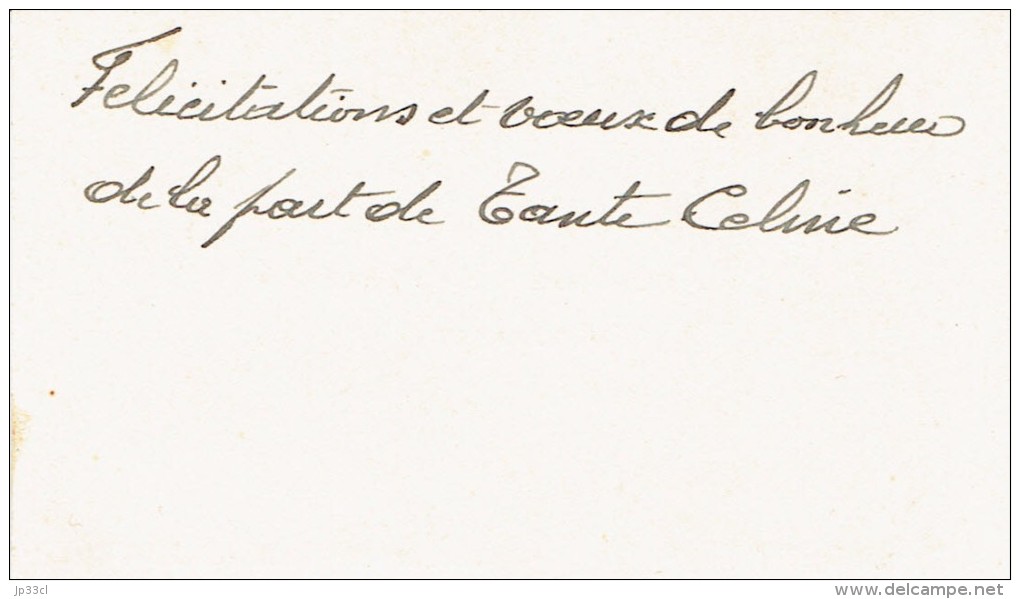 Felicitations et voeux de bonheur
de la part de Tante Celine
jp33cl
www.delcampe.net